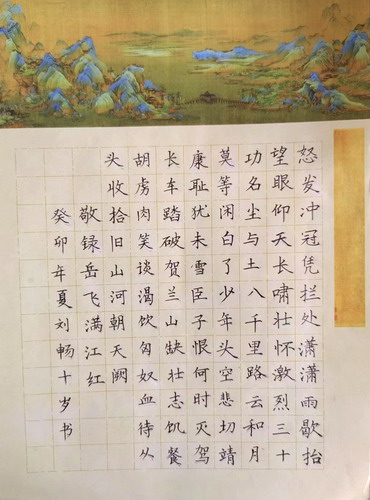 怒发冲冠凭栏处潇潇雨歇抬
望眼仰天长啸壮怀激烈三十
功名尘与土八千里路云和月
莫等闲白了少年头空悲切靖
康耻犹未雪臣子恨何时灭驾
长车踏破贺兰山缺壮志饥餐
胡虏肉笑谈渴饮匈奴血待从
头收拾旧山河朝天阙
敬录岳飞满江红
癸卯年夏刘畅十岁书